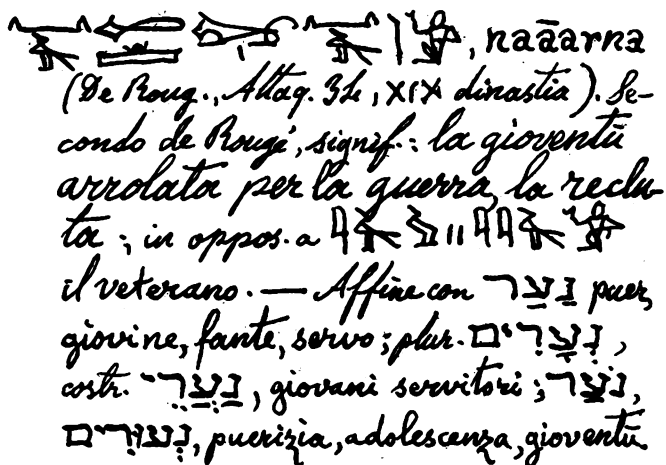 , naāarna
(De Roug., Attaq. 34, XIX dinastia). Se-
condo de Rougé, signif.: la gioventù
arrolata per la guerra, la reclu-
ta; in oppos. a
il veterano. — Affine con נַעַר puer,
giovine, fante, servo; plur. נְעָרִים,
costr. נַעֲרֵי, giovani servitori; נֹעַר,
נְעוּרִים, puerizia, adolescenza, gioventù.